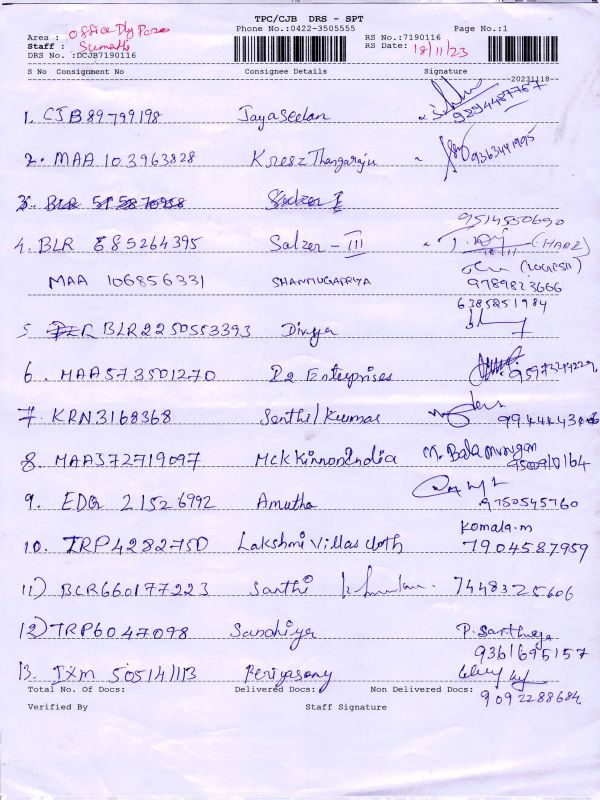 TPC/CJB DRS - SPT
Phone No.:0422-3505555 Page No.:1
Area : Office Dly
Staff : Sumathi
RS No.:7190116
RS Date: 18/11/23
DRS No. :DCJB7190116
S No Consignment No Consignee Details Signature
20231118
1. CJB 89799198 Jayaseelan 9294487757
2. MAA 103963828 Kresz Thangaraju 9363491995
3. BLR
9514550690
4. BLR 685264395 Salzer - III (HARI)
MAA 106856331 SHANMUGAPRIYA 9789823666
6385251984
5 BLR2250553393 Divya
6. MAA573501270 P2 Enterprises
7. KRN3168368 Senthil Kumar
8. MAA372719097 Mckkinnon India M. Balamurugan
9. EDQ 21526992 Amutha 9750545760
Komala.m
10. TRP4282750 Lakshmi Villas cloth 7904587959
11) BLR660177223 Santhi 7448325606
12) TRP6047098 Sandhiya P. Santhiya
9361695157
13. IXM 505141113 Periyasamy
Total No. Of Docs: Delivered Docs: Non Delivered Docs:
9092288684
Verified By Staff Signature